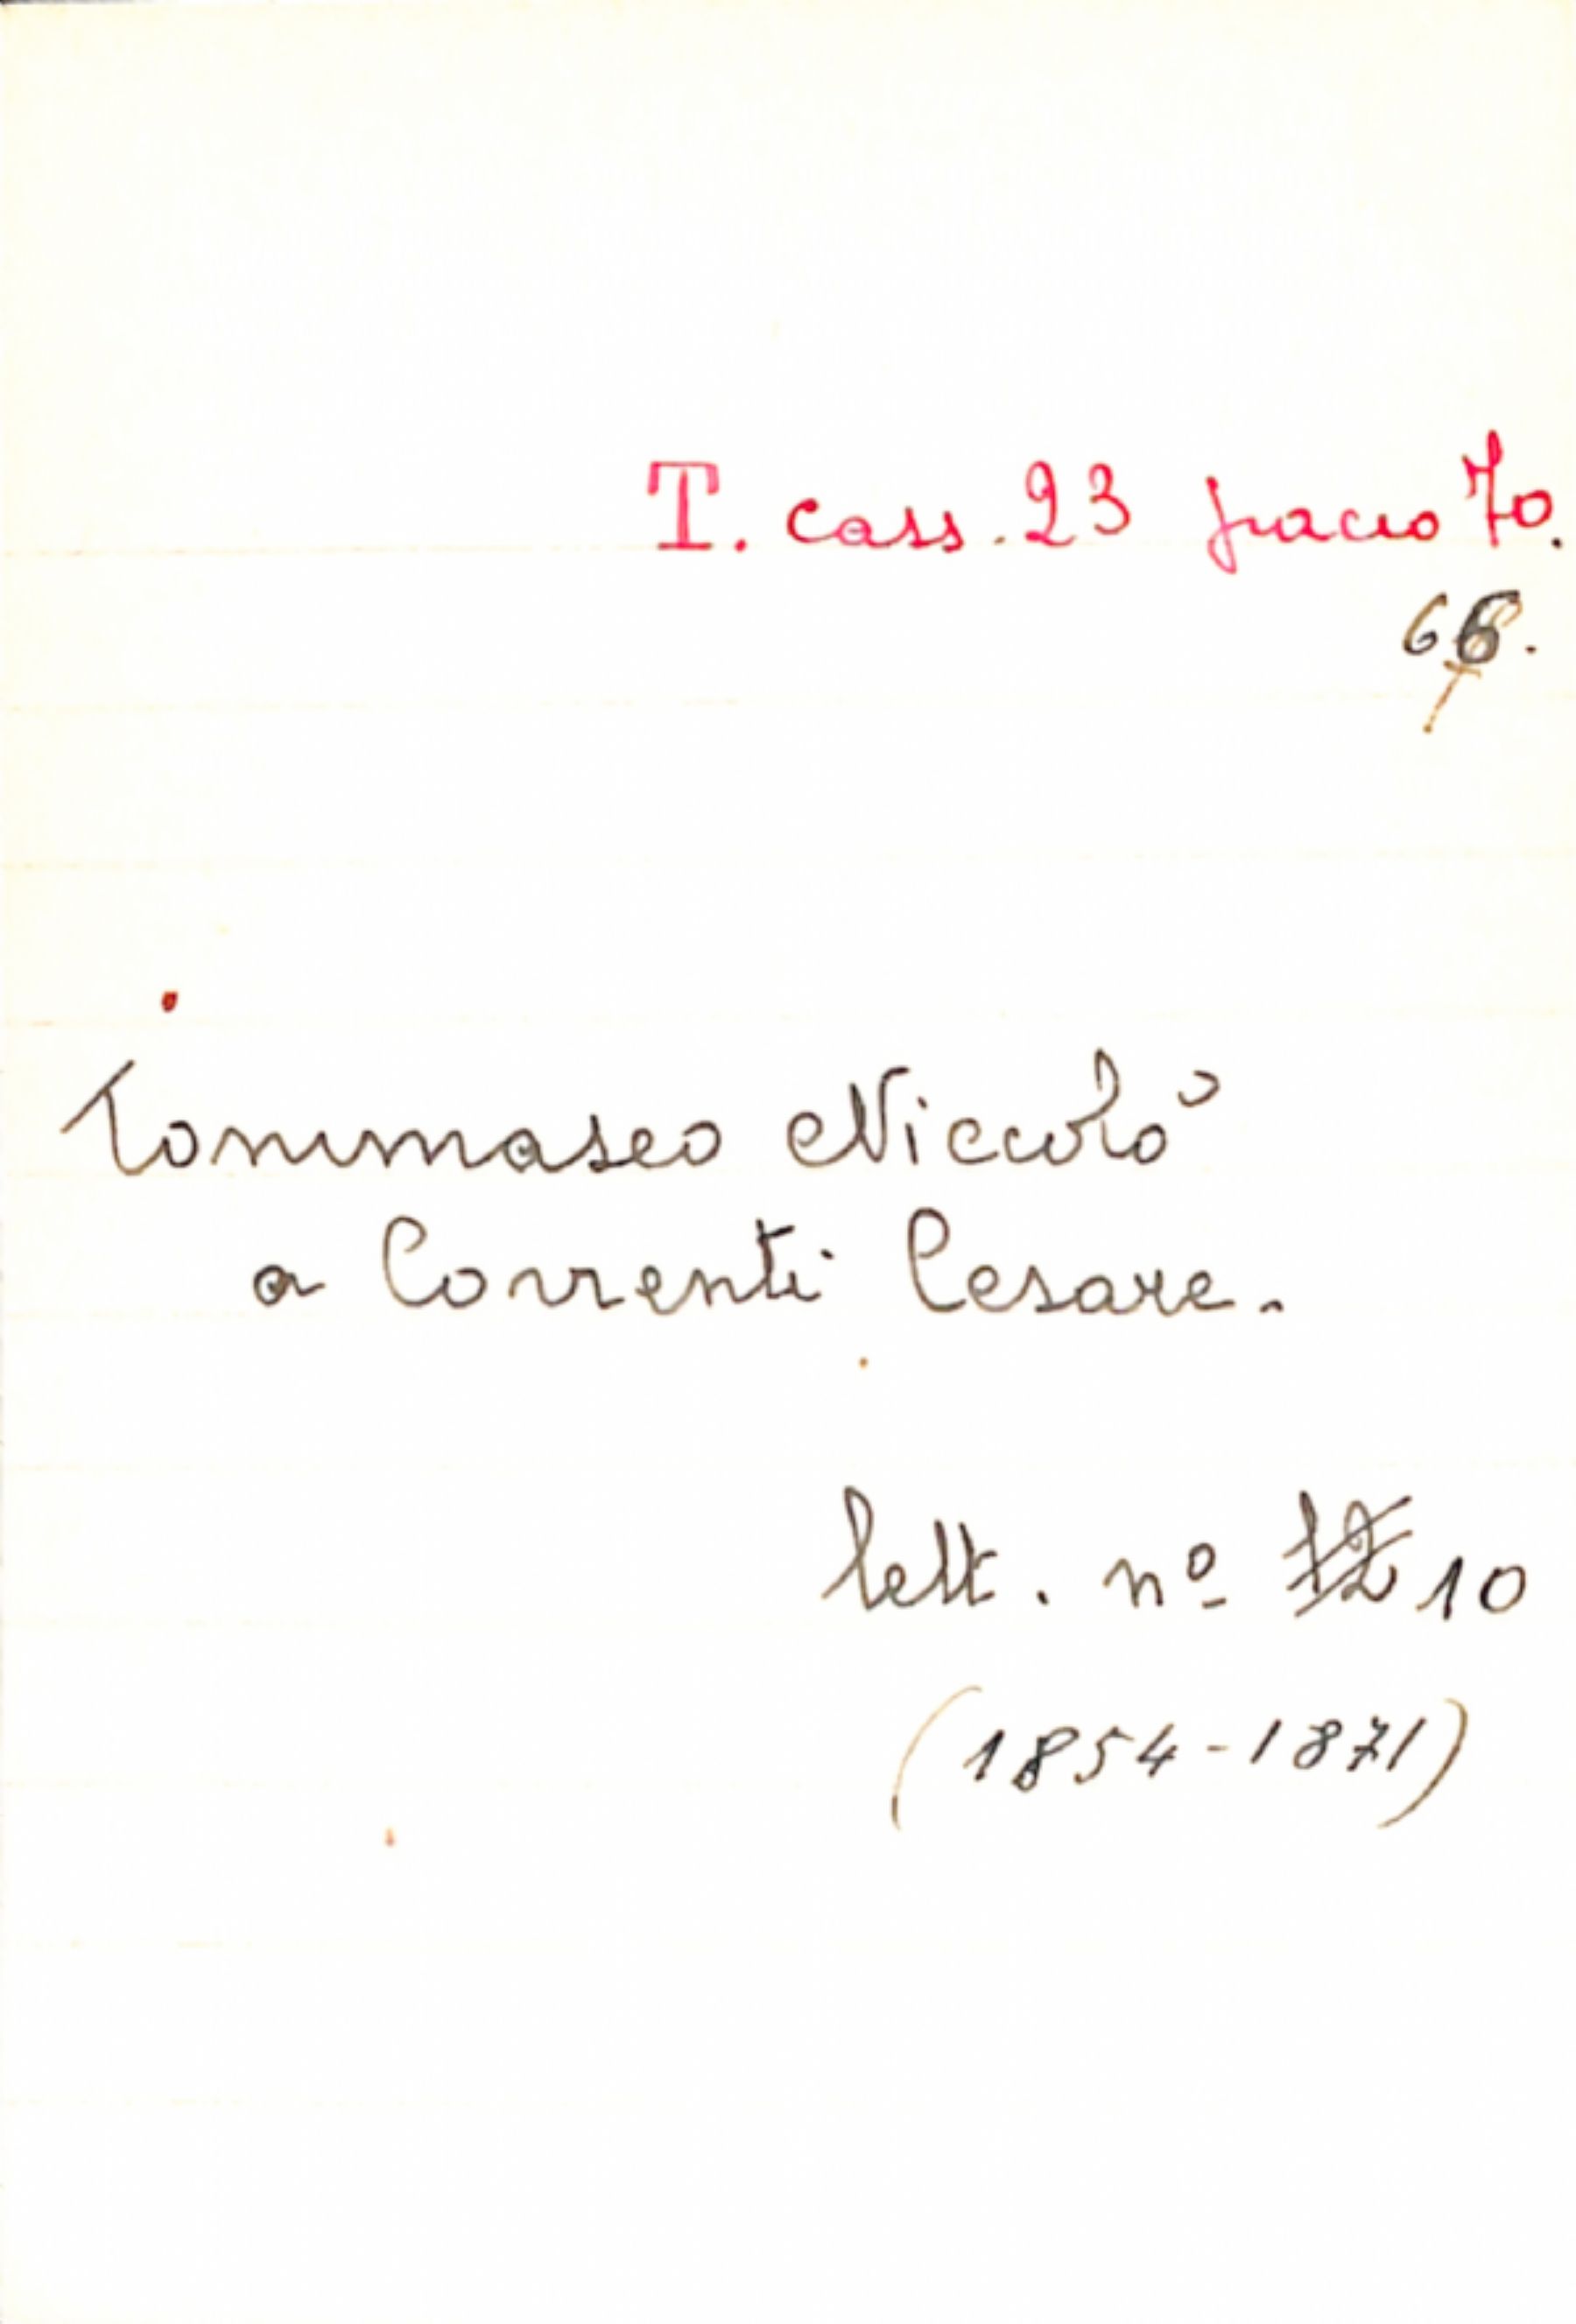 T. cass. 23 pacco 70.
66.
Tommaseo Niccolò
a Correnti Cesare.
lett. nº 12 10
(1854-1871)